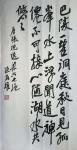 巴陵一望洞庭秋日見孤
峯水上浮聞道神
仙不可接心随湖水共
悠悠